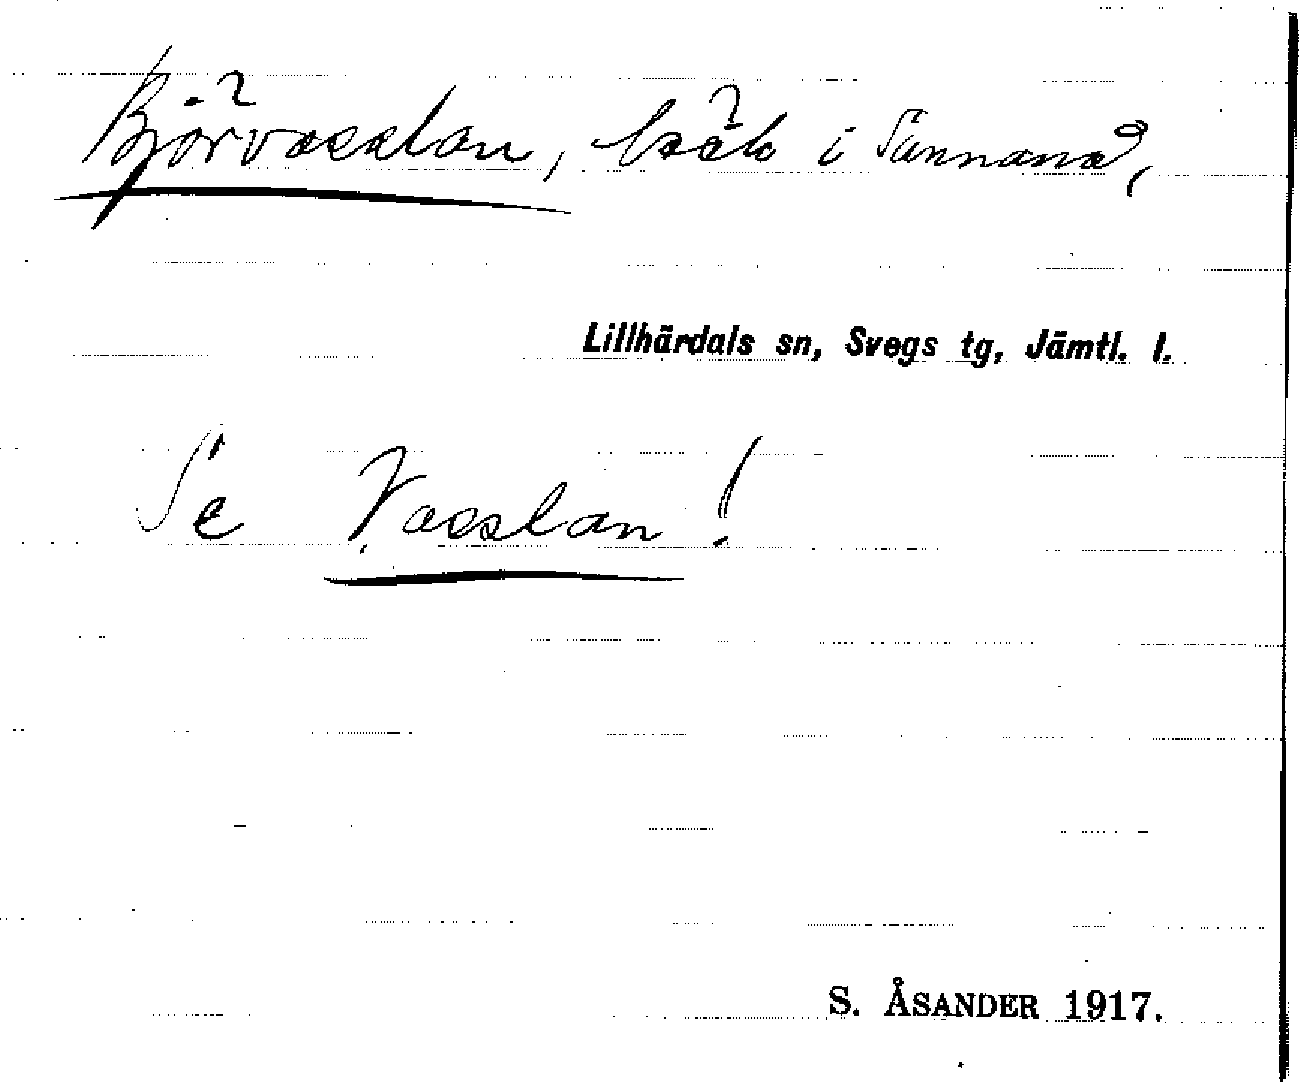 Björvasslan, bäck i Sunnanå,
Lillhärdals sn, Svegs tg, Jämtl. l.
Se Vasslan!
S. ÅSANDER 1917.